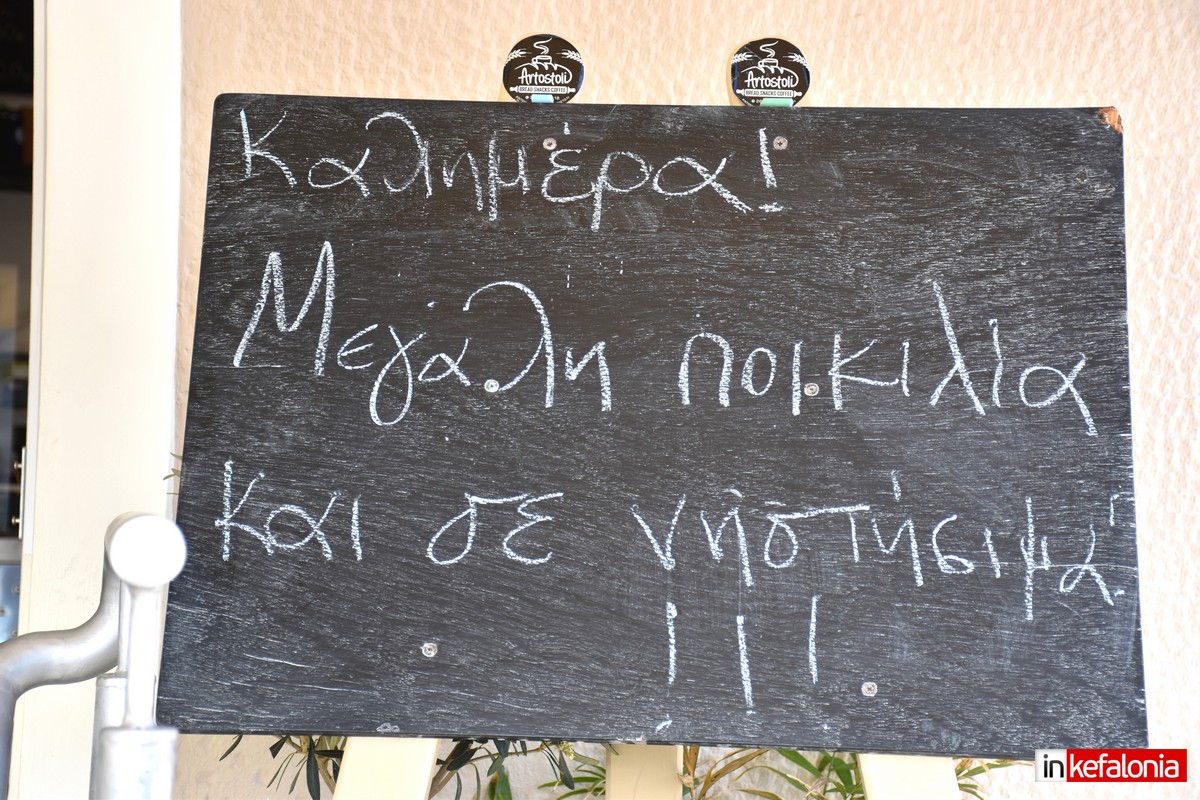 Artostoli
BREAD SNACKS COFFEE
Artostoli
BREAD SNACKS COFFEE
Καλημέρα!
Μεγάλη ποικιλία
και σε νηστήσιμα
!!!
inkefalonia